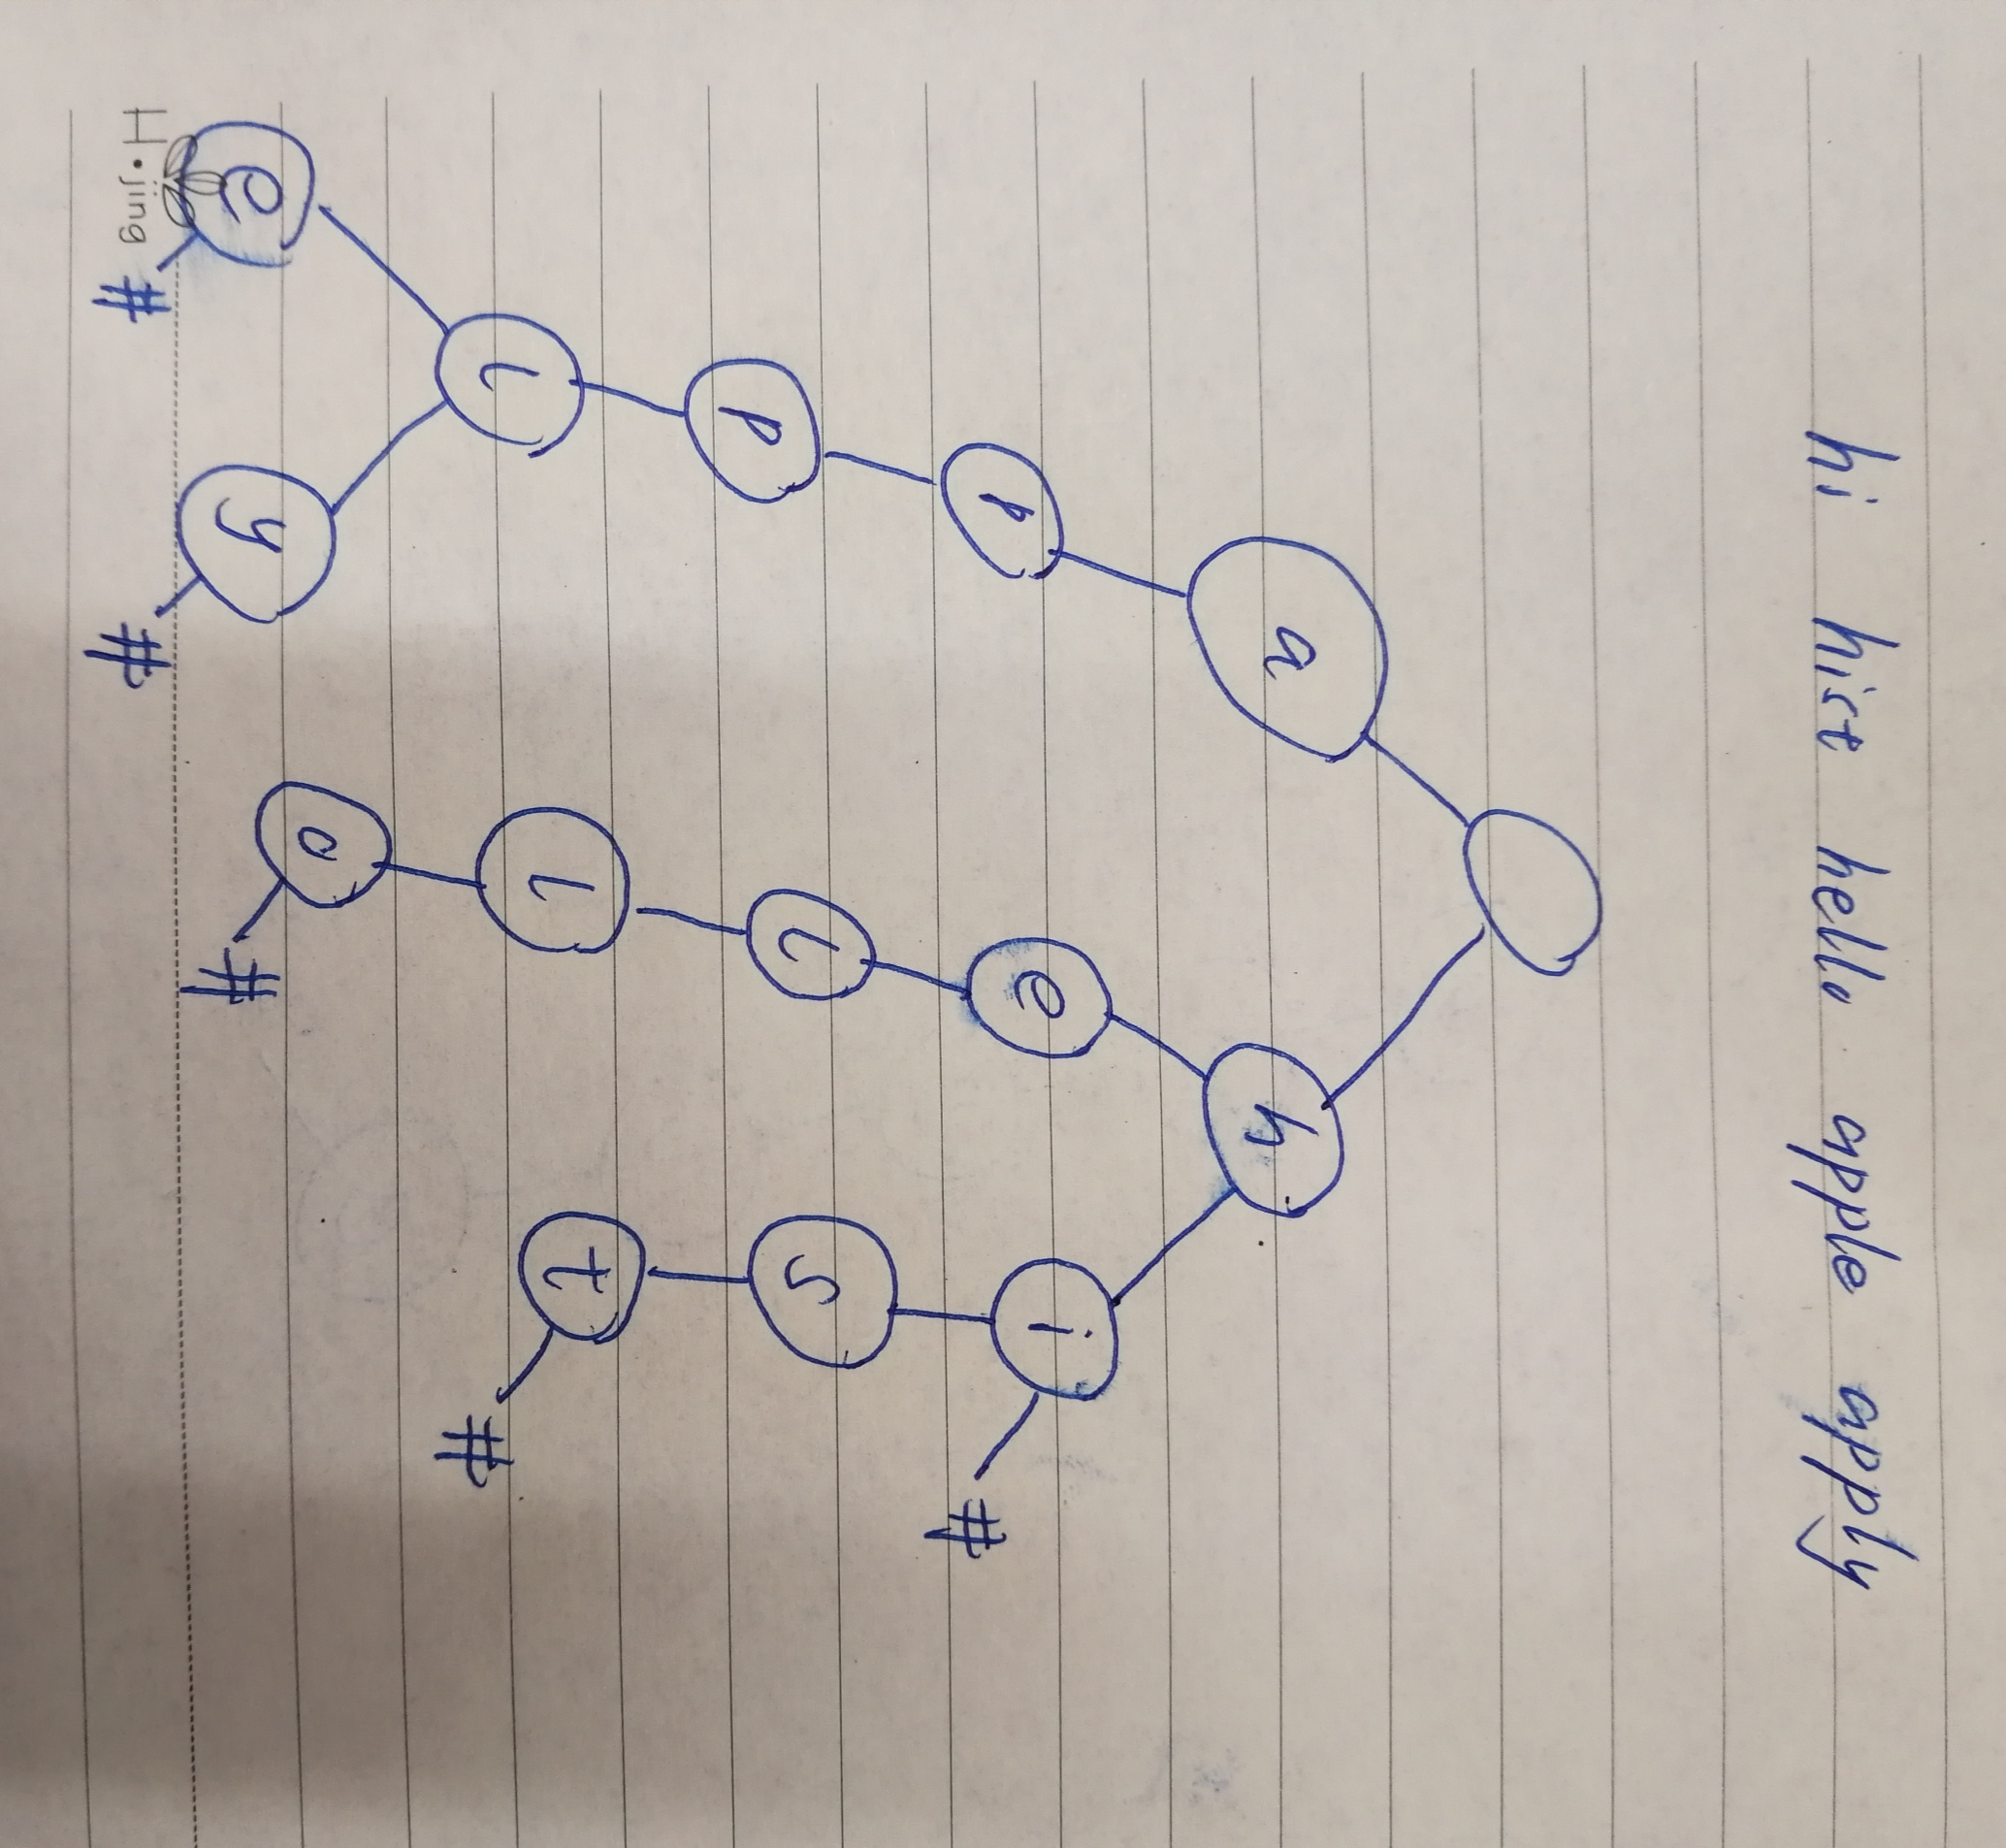 hi hist hello apple apply
a h
p e i
#
p l s
l l t
#
e y o
#
H·jing # #